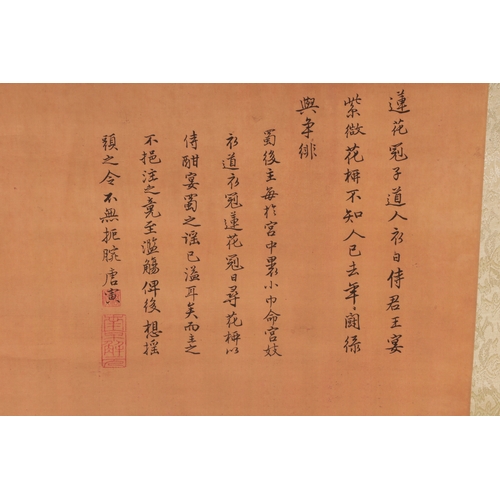 蓮花冠子道人衣日侍君王宴
紫微花柳不知人已去年年鬪綠
與爭緋
蜀後主每於宮中裹小巾命宮妓
衣道衣冠蓮花冠日尋花柳以
侍酣宴蜀之謠已溢耳矣而主之
不挹注之竟至濫觴俾後想搖
頞之令不無扼腕唐寅